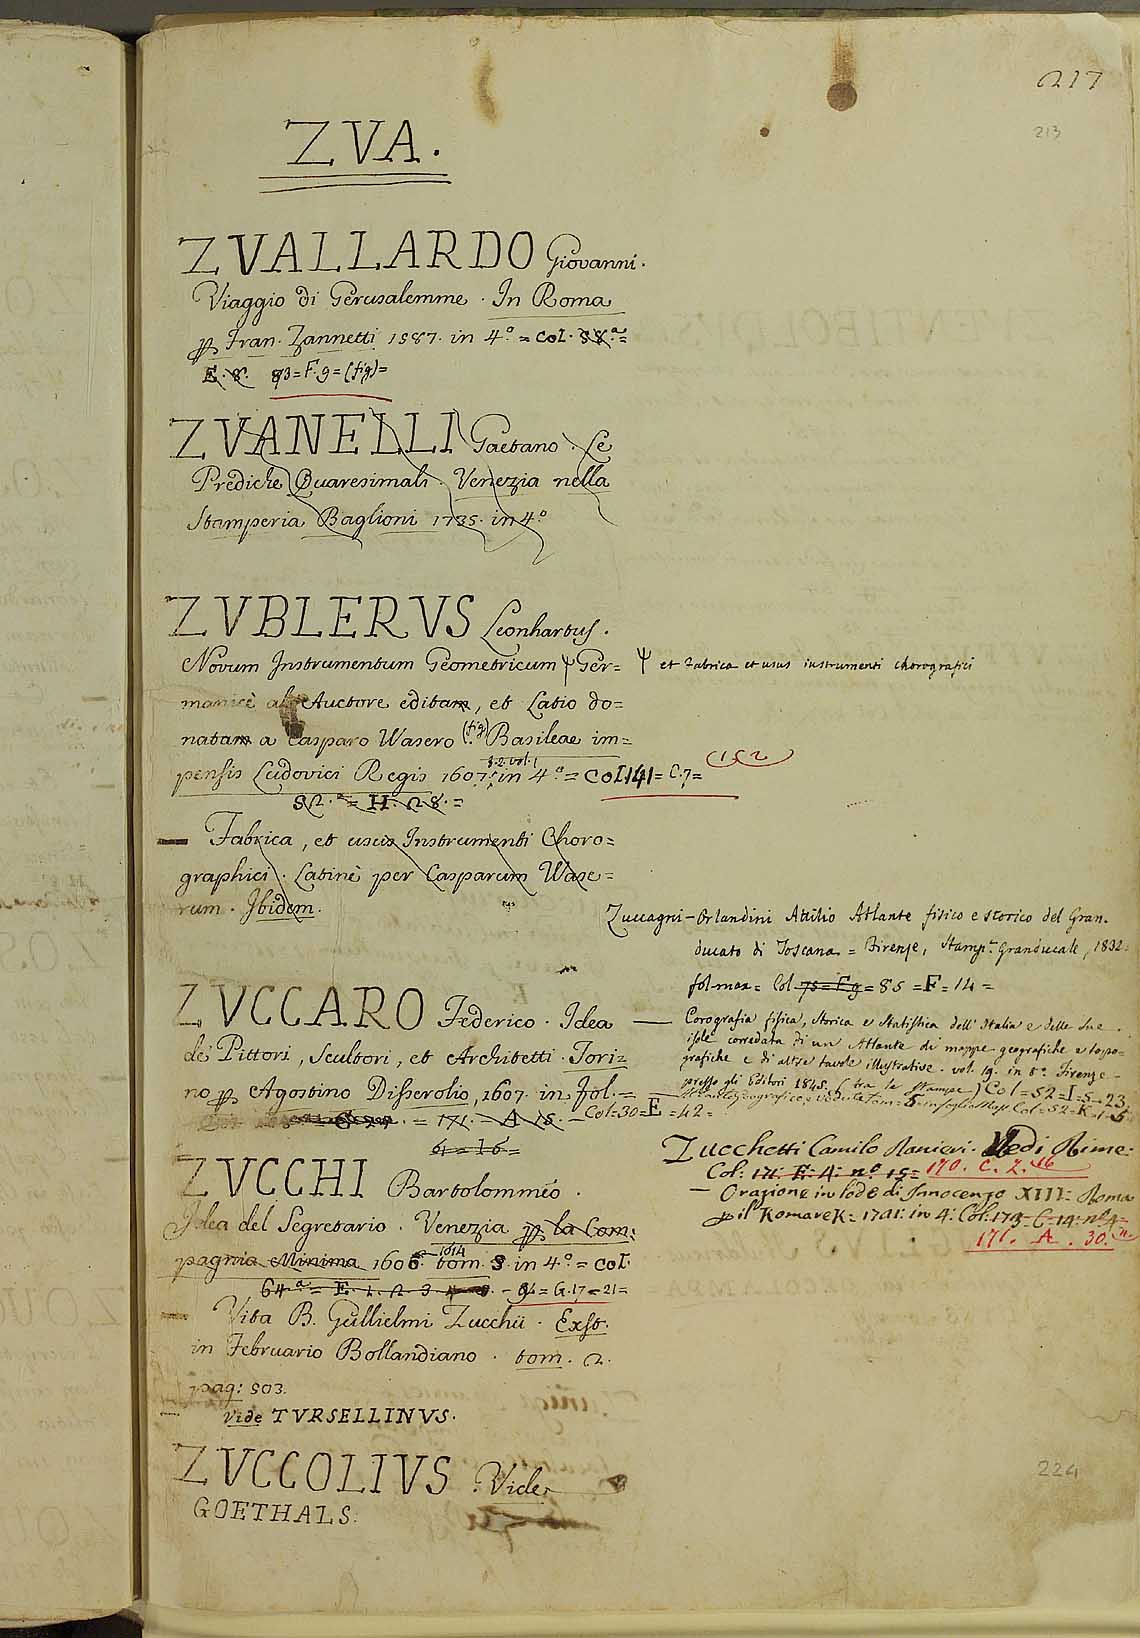 217
213
ZVA.
ZVALLARDO Giovanni.
Viaggio di Gerusalemme. In Roma
Fran. Zannetti 1587. in 4.º = col. 58.ª =
E. 8. 93 = F. 9 = (fig) =
ZVANELLI Gaetano. Le
Prediche Quaresimali. Venezia nella
Stamperia Baglioni 1735. in 4.º
ZVBLERVS Leonhartus.
Novum Instrumentum Geometricum Ψ Ger=
Ψ et Fabrica et usus instrumenti chorografici
manicè ab Auctore editam, et Latio do=
natam a Casparo Wasero (fig). Basileae im=
pensis Ludovici Regis 1607. in 4.º = Col. 141 = C. 7 =
(152)
52.ª = H. 28. =
— Fabrica, et usus Instrumenti Choro=
graphici. Latinè per Casparum Wase=
rum. Ibidem.
ZVCCARO Federico. Idea
de' Pittori, Scultori, et Architetti. Tori=
no Agostino Disserolio, 1607. in fol. =
= 171. - A. 15. - Col = 30 = E = 42 =
61 = 16 =
ZVCCHI Bartolomméo.
Idea del Segretario. Venezia la Com:
pagnia Minima 1606. 1614 tom. 3 in 4.º = col.
64.ª = E. 1. 2. 3. - 94 = G. 17 - 21 =
— Vita B. Gullielmi Zucchii. Exst.
in Februario Bollandiano. tom. 2.
pag: 503.
— Vide TVRSELLINVS.
ZVCCOLIVS Vide
GOETHALS.
Zuccagni-Orlandini Attilio Atlante fisico e storico del Gran.
ducato di Toscana = Firenze, Stamp. Granducale, 1832
fol max = Col 75 = F. 9 = 85 = F = 14 =
— Corografia fisica, storica e statistica dell'Italia e delle sue
isole corredata di un Atlante di mappe geografiche e topo=
grafiche e di altre tavole illustrative. vol. 19. in 8.º Firenze
presso gli Editori 1845. (tra le stampe) Col = 52 = I = 5 - 23
Col = 52 = K = 1 - 5
Zucchetti Camilo Ranieri. Rime:
Col: 171: E: 4: nº 15 = 170. C. 7. 16
— Orazione in lode di Innocenzo XIII: Roma
il Komarek = 1721: in 4: Col: 173 - C - 14: nº 4 =
171. A. 30.
224